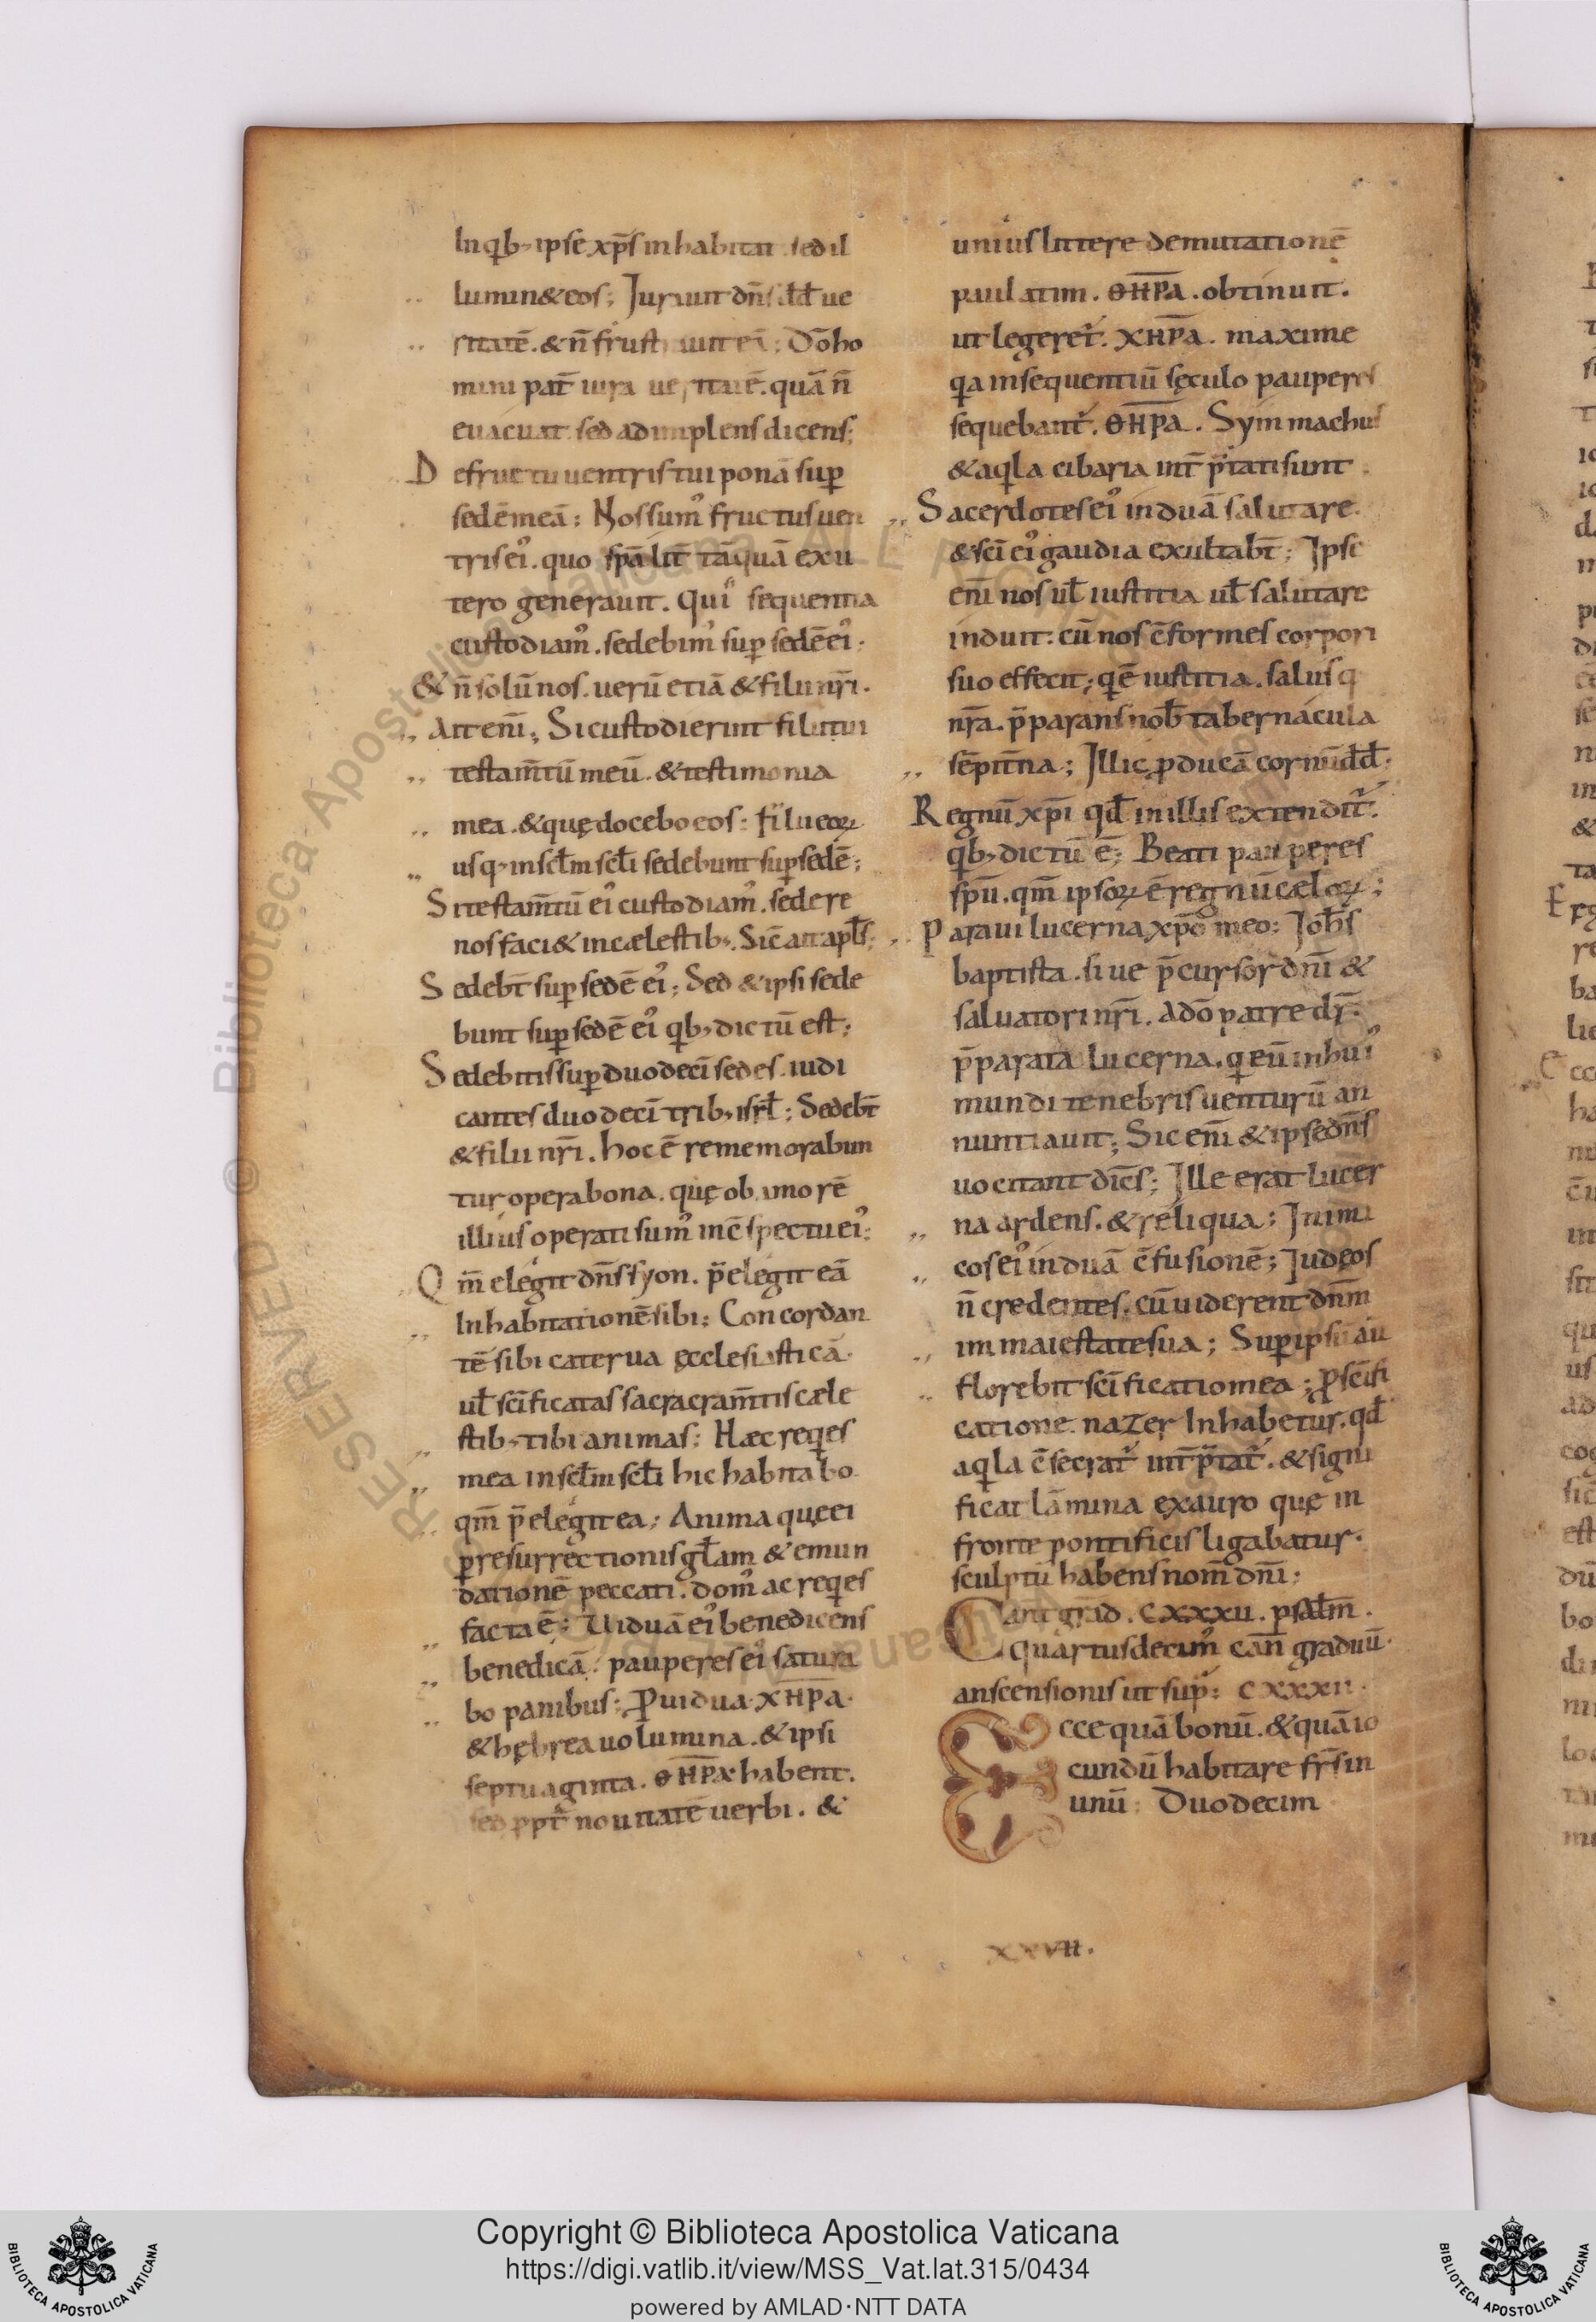 In qb; ipse xp̄s inhabitat sed il
lumin& eos; Iurauit dn̄s dd̄ ue
ritatē. & n̄ frustrauit eā; Dō ho
mini pat̄ iura ueritatē. quā n̄
euacuat sed adimplens dicens;
De fructu uentris tui ponā sup̱
sedē meā; Nos sum᾽ fructus uen
tris ei᾽. quo sp̄alit̄ tāquā ex u
tero generauit. Qui sequentia
custodiam᾽. sedebim᾽ sup̱ sedē ei᾽;
& n̄ solū nos. uerū etiā & filii nr̄i.
Ait eni̅; Si custodierint filii tui
testam̄tū meū. & testimonia
mea. & quę docebo eos: filii eoꝝ
usq; in scl̄m scl̄i sedebunt sup̱ sedē;
Si testam̄tū ei᾽ custodiam᾽. sedere
nos faci& in cælestib;. Sic̄ ait apl̄s;
Sedebt̄ sup̱ sedē ei᾽; Sed & ipsi sede
bunt sup̱ sedē ei᾽ qb; dictū est;
Sedebitis sup̱ duodeci̅ sedes. iudi
cantes duodeci̅ trib; isrl̄; Sedebt̄
& filii nr̄i. hoc ē rememorabun
tur opera bona. quę ob amorē
illius operati sum᾽ in c̄spectu ei᾽;
Qm̄ elegit dn̄s syon. p̄elegit eā
In habitationē sibi; Concordan
tē sibi caterua ęcclesiasticā.
ul̄ sc̄ificatas sacra cram̄tis cæle
stib; tibi animas; Hæc reqes
mea in scl̄m scl̄i hic habitabo
qm̄ p̄elegit ea; Anima quę ei
p̱ resurrectionis gl̄am & emun
dationē peccati. dom᾽ ac reqes
facta ē; Uiduā ei᾽ benedicens
benedicā. pauperes ei᾽ satura
bo panibus; P̱ uidua. XHP̅A.
& hębrea uolumina. & ipsi
septuaginta. ΘHP̅A. habent.
sed ppt̄ nouitatē uerbi. &
unius littere demutationē
paulatim. ΘHP̅A. obtinuit.
ut legeret᾽. XHP̅A. maxime
qa insequentiū sęculo pauperes
sequebant᾽. ΘHP̅A. Symmachus
& aqla cibaria int̄p̄tati sunt.
Sacerdotes ei᾽ induā salutare.
& sc̄i ei᾽ gaudia exultabt̄; Ipse
eni̅ nos ul̄ iustitia ul̄ salutare
induit: cū nos c̄formes corpori
suo effecit; qē iustitia. salusq
nr̄a. p̄parans nob̄ tabernacula
sēpit̄na; Illic p̱ducā cornu dd̄.
Regnū xp̄i qd̄ in illis extendit᾽.
qb; dictū ē; Beati pauperes
sp̄u. qm̄ ipsoꝝ ē regnū cæloꝝ;
Paraui lucerna xp̄o meo: Ioh̄s
baptista. siue p̄cursor dn̄i &
saluatori nr̄i. a dō patre dr̄.
p̄parata lucerna. q eū in hui᾽
mundi tenebris uenturū an
nuntiauit; Sic eni̅ & ipse dn̄s
uocitant dic̄s; Ille erat lucer
na ardens. & reliqua; Inimi
cos ei᾽ induā c̄fusionē; Iudęos
n̄ credentes. cū uiderent dn̄m
im maiestate sua; Sup̱ ipsū au̅
florebit sc̄ificatio mea; P̱ sc̄ifi
catione. nazer In habetur. qd̄
aqla c̄secrat᾽ int̄p̄tat᾽. & signi
ficat lāmina ęx auro quę in
fronte pontificis ligabatur.
sculptū habens nom̄ dn̄i;
Cant grad. CXXXII. psal̄m.
Quartusdecim᾽ can̄ graduū.
anscensionis ut sup̱: CXXXII.
Ecce quā bonū. & quā io
cundū habitare fr̄s in
unū; Duodecim
XXVII.
© Biblioteca Apostolica Vaticana
RESERVED
Copyright © Biblioteca Apostolica Vaticana
https://digi.vatlib.it/view/MSS_Vat.lat.315/0434
powered by AMLAD·NTT DATA
BIBLIOTECA APOSTOLICA VATICANA
BIBLIOTECA APOSTOLICA VATICANA